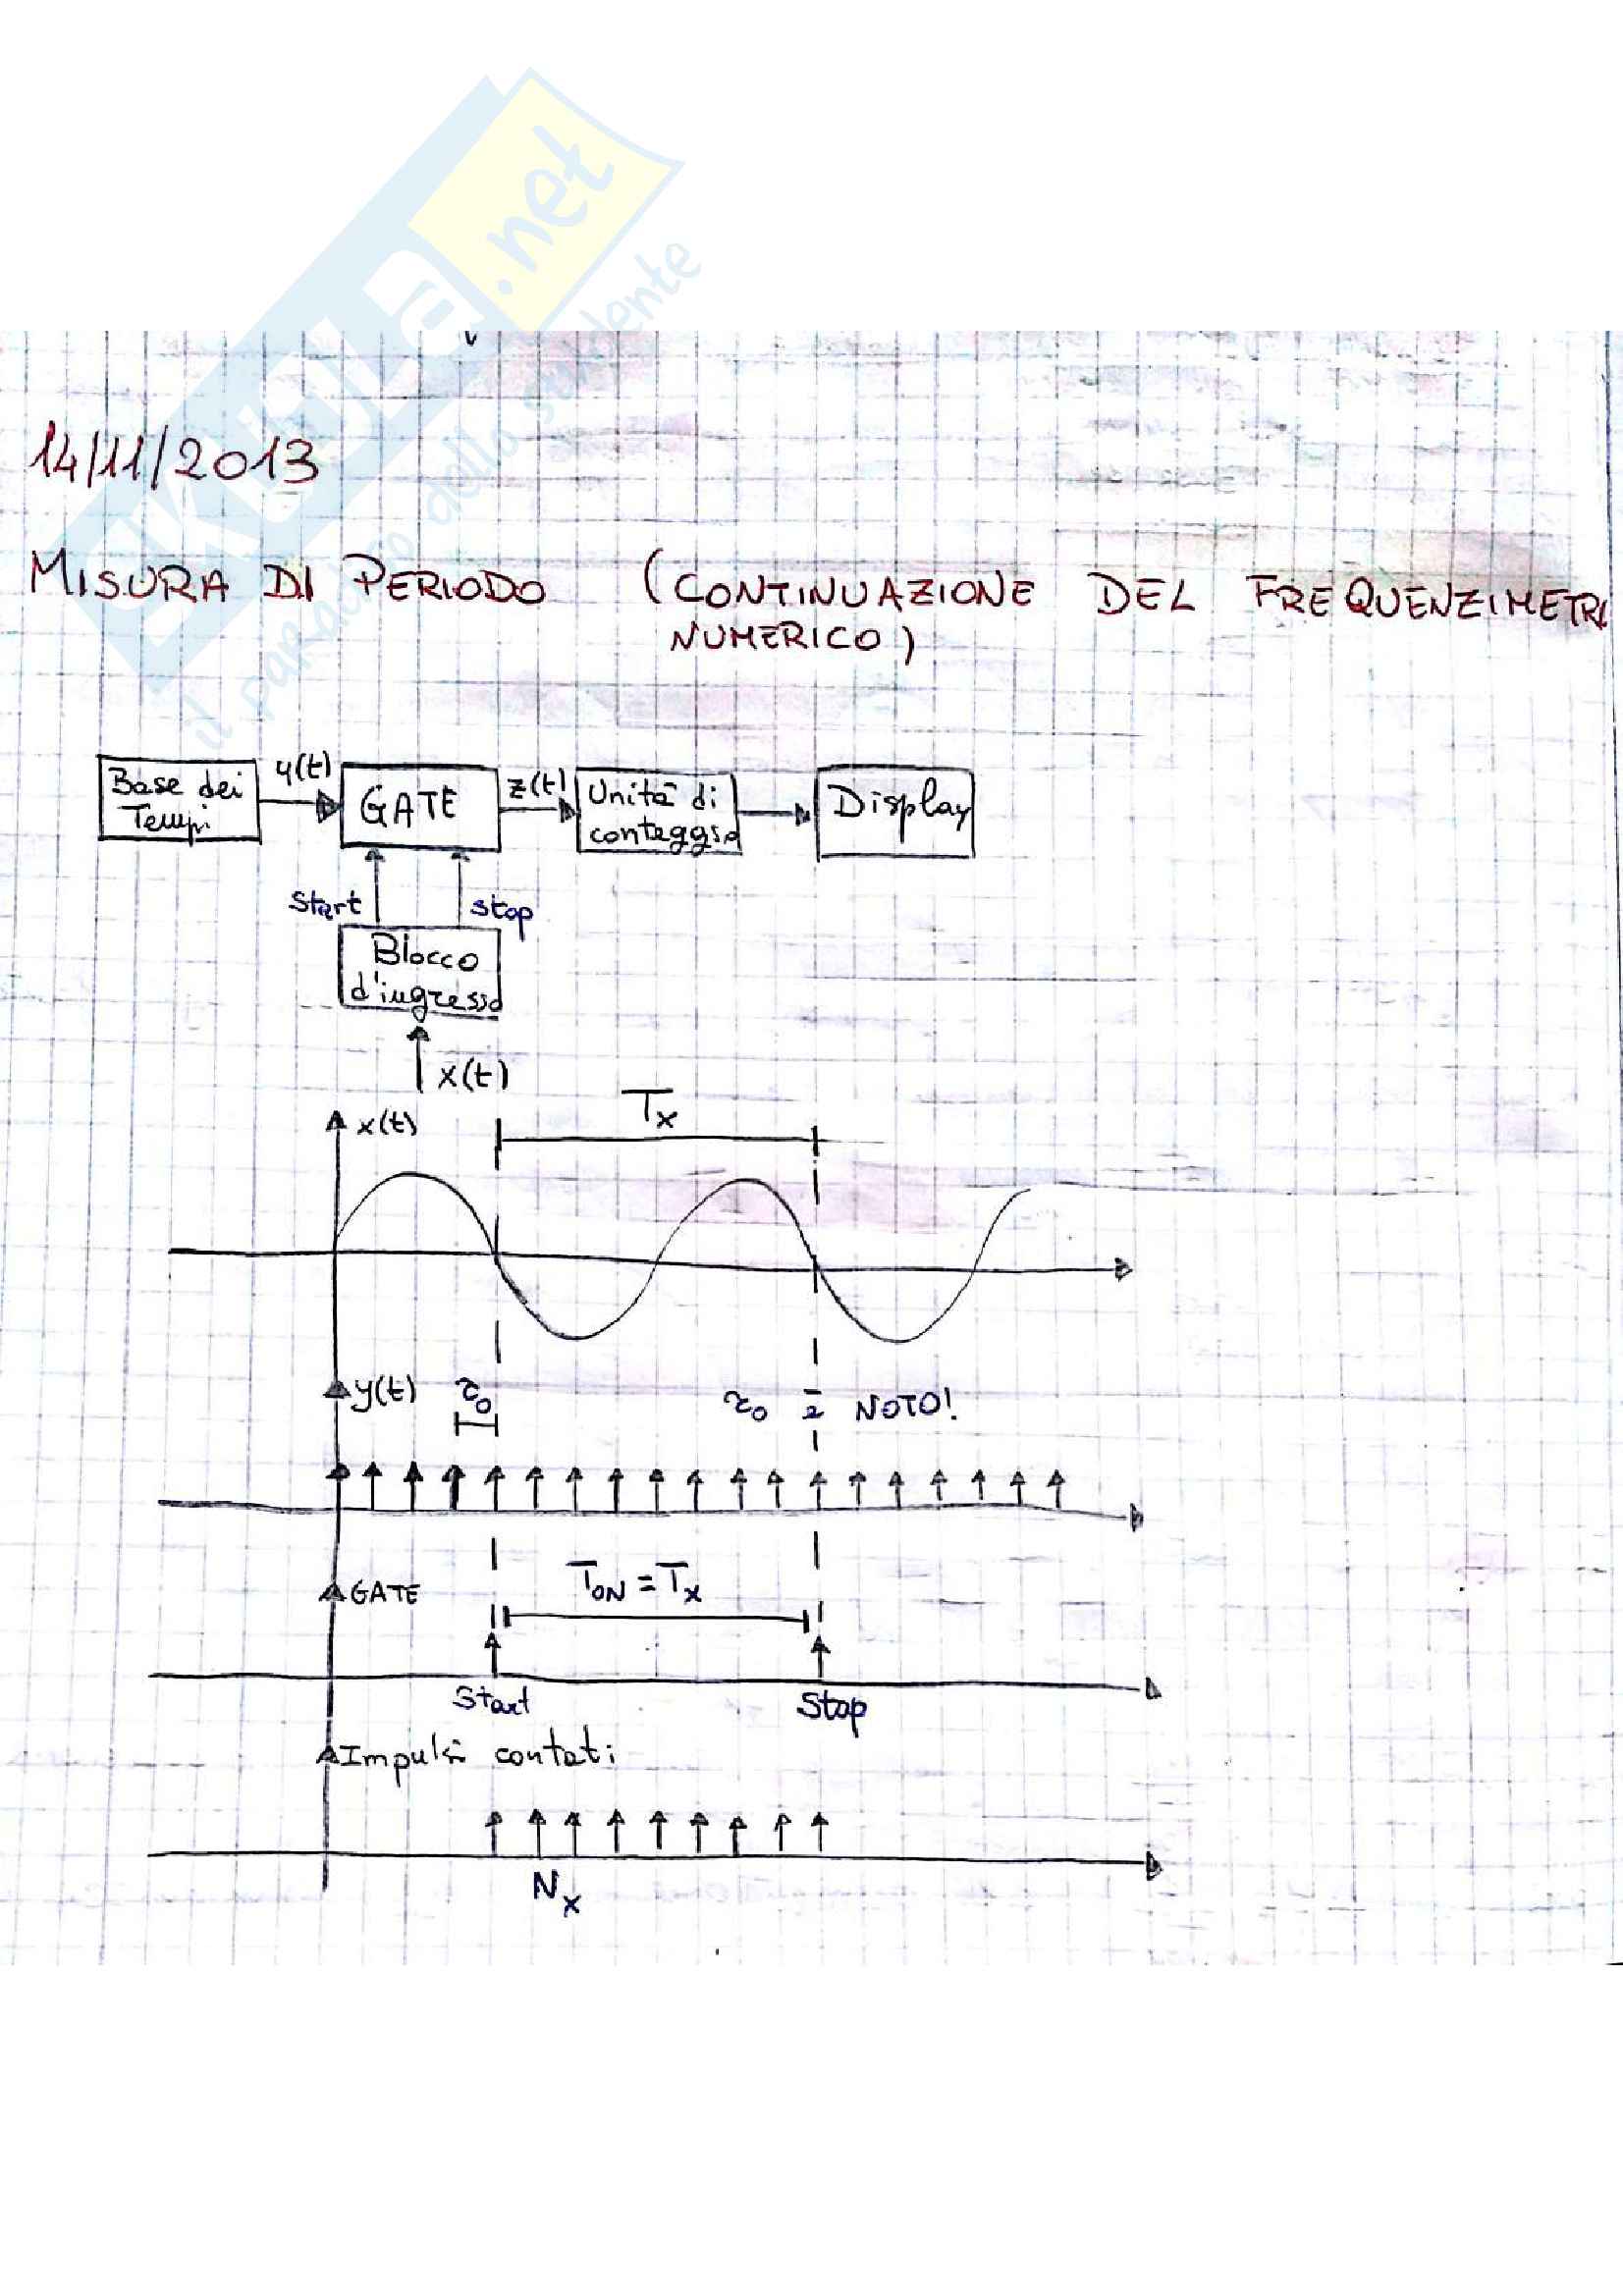 SKUOLA.net
il paradiso dello studente
14/11/2013
MISURA DI PERIODO (CONTINUAZIONE DEL FREQUENZIMETR
NUMERICO)
Base dei
Tempi
y(t)
GATE
z(t)
Unità di
conteggio
Display
Start
stop
Blocco
d'ingresso
x(t)
Tx
x(t)
y(t)
τ0
τ0 è NOTO!
GATE
TON = Tx
Start
Stop
Impulsi contati
Nx